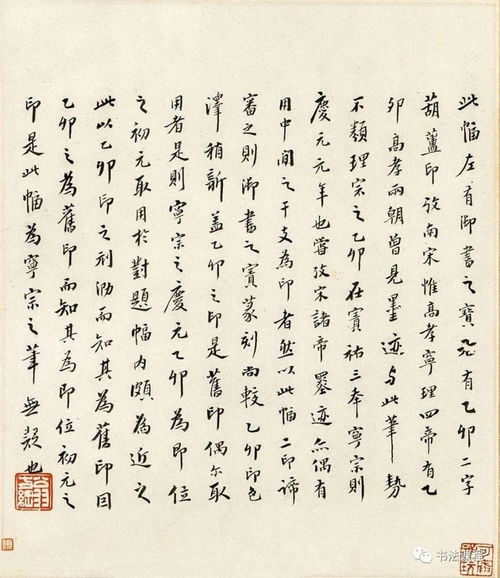 此幅左有御書之寶有乙卯二字
葫蘆印攷南宋惟高孝寧理四帝有乙
卯高孝兩朝曾見墨迹与此筆勢
不類理宗之乙卯在寶祐三年寧宗則
慶元元年也嘗攷宋諸帝墨迹亦偶有
用中間之干支為印者然以此幅二印諦
審之則御書之寶篆刻尚較乙卯印色
澤稍新蓋乙卯之印是舊印偶尔取
用者是則寧宗之慶元乙卯為即位
之初元取用於對題幅內頗為近之
此以乙卯印之刓泐而知其為舊印因
乙卯之為舊印而知其為即位初元之
印是此幅為寧宗之筆無疑也
书法